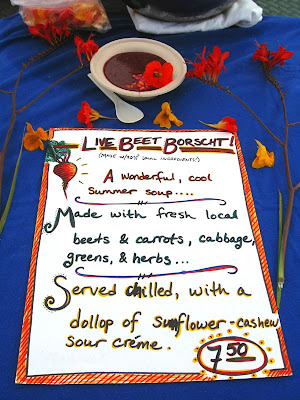 LIVE BEET BORSCHT!
(MADE W/90% LOCAL INGREDIENTS!)
A wonderful, cool
Summer soup....
Made with fresh local
beets & carrots, cabbage,
greens, & herbs...
Served chilled, with a
dollop of sunflower-cashew
sour créme.
7 50